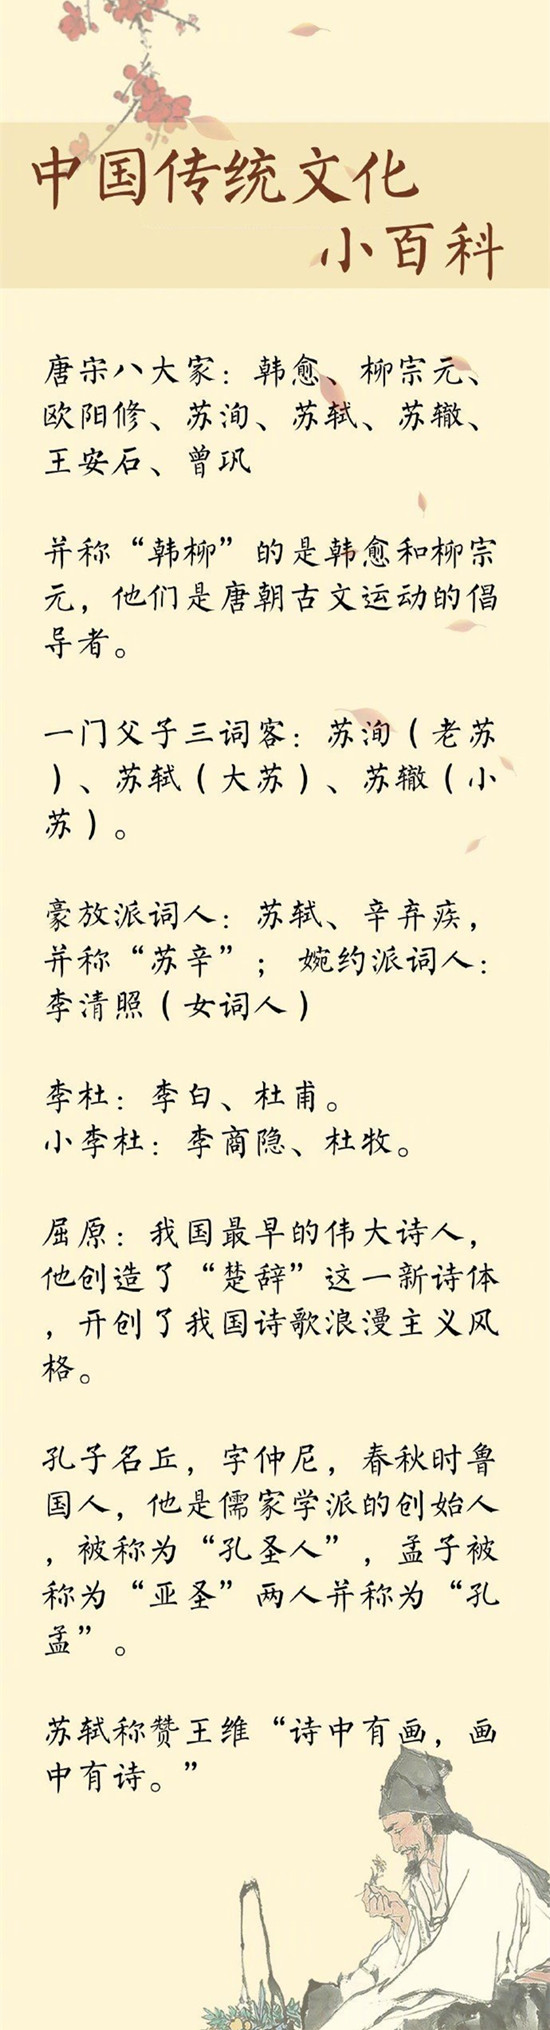 中国传统文化
小百科
唐宋八大家：韩愈、柳宗元、
欧阳修、苏洵、苏轼、苏辙、
王安石、曾巩
并称“韩柳”的是韩愈和柳宗
元，他们是唐朝古文运动的倡
导者。
一门父子三词客：苏洵（老苏
）、苏轼（大苏）、苏辙（小
苏）。
豪放派词人：苏轼、辛弃疾，
并称“苏辛”； 婉约派词人：
李清照（女词人）
李杜：李白、杜甫。
小李杜：李商隐、杜牧。
屈原：我国最早的伟大诗人，
他创造了“楚辞”这一新诗体
，开创了我国诗歌浪漫主义风
格。
孔子名丘，字仲尼，春秋时鲁
国人，他是儒家学派的创始人
，被称为“孔圣人”，孟子被
称为“亚圣”两人并称为“孔
孟”。
苏轼称赞王维“诗中有画，画
中有诗。”